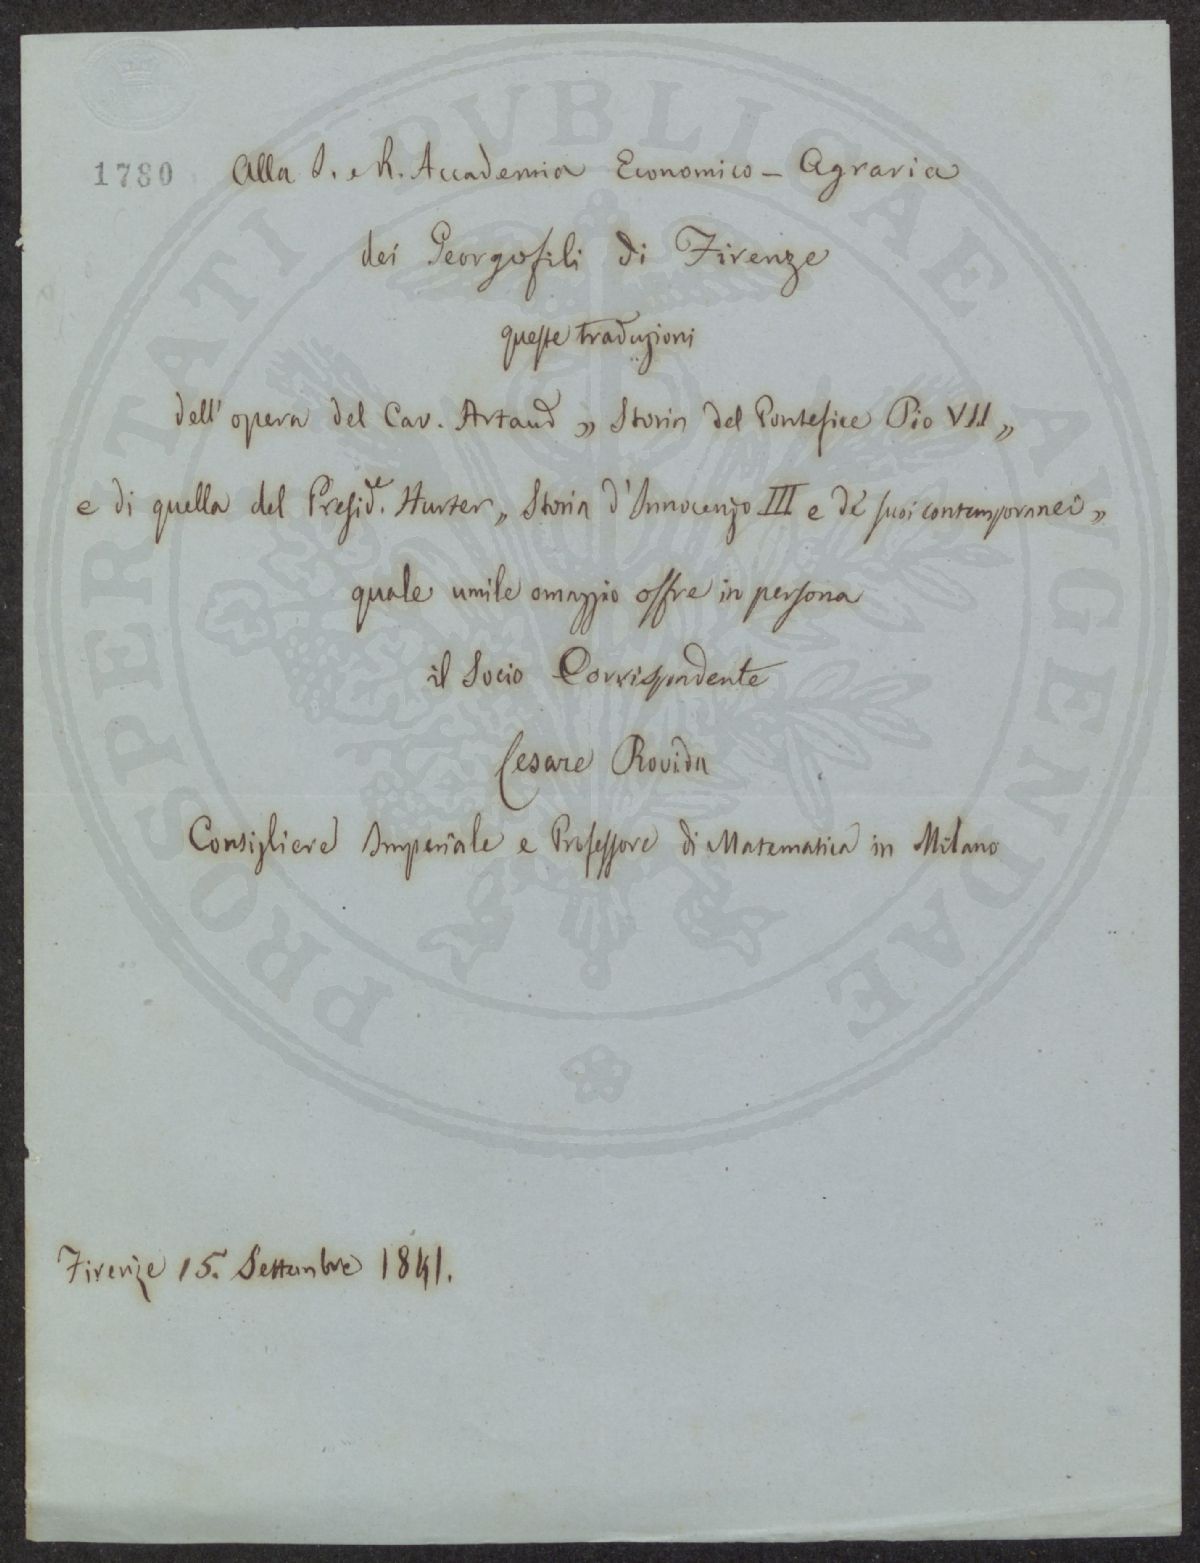 1780
Alla I. e R. Accademia Economico - Agraria
dei Georgofili di Firenze
queste traduzioni
dell' opera del Cav. Artaud „ Storia del Pontefice Pio VII „
e di quella del Presid.e Hurter „ Storia d'Innocenzo III e de' suoi contemporanei „
quale umile omaggio offre in persona
il Socio Corrispondente
Cesare Rovida
Consigliere Imperiale e Professore di Matematica in Milano
Firenze 15. Settembre 1841.
PROSPERITATI PVBLICAE AVGENDAE